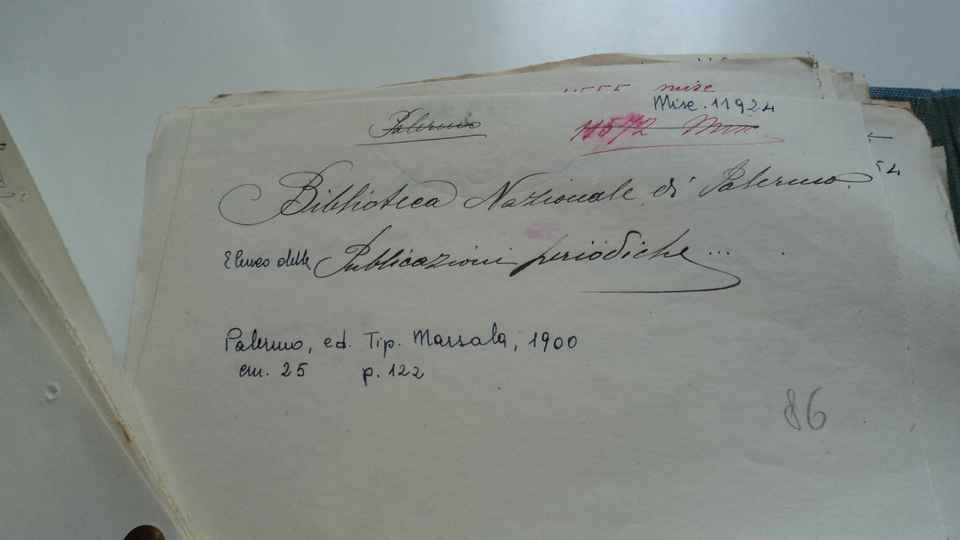 misc
Misc. 11924
Palermo
11572 Misc.
Biblioteca Nazionale di Palermo.
Elenco delle Pubblicazioni periodiche...
Palermo, ed. Tip. Marsala, 1900
cm. 25 p. 122
86